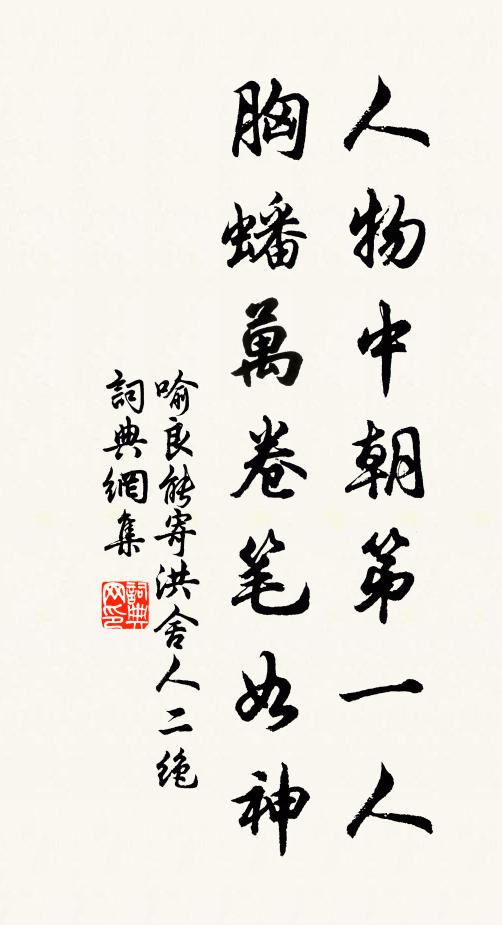 人物中朝第一人
胸蟠萬卷笔如神
喻良能寄洪舍人二绝
詞典網集
詞典网印